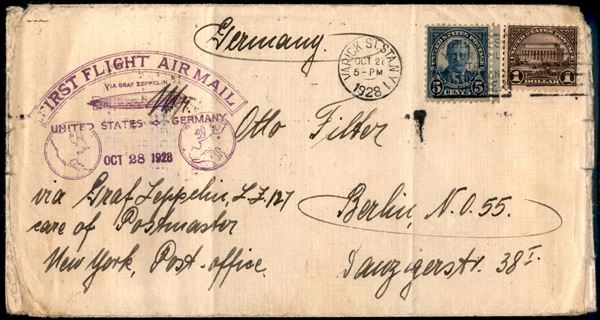 Germany.
VARICK ST. STA. N.Y. 1
OCT 2
5-PM
1928
UNITED STATES POSTAGE
5 CENTS 5
UNITED STATES POSTAGE
1 DOLLAR 1
FIRST FLIGHT AIR MAIL
VIA GRAF ZEPPELIN
UNITED STATES GERMANY
OCT 28 1928
Otto Filter
via Graf Zeppelin, L.Z. 127
care of Postmaster
New York, Post-office.
Berlin, N.O. 55.
Danzigerstr. 38I.